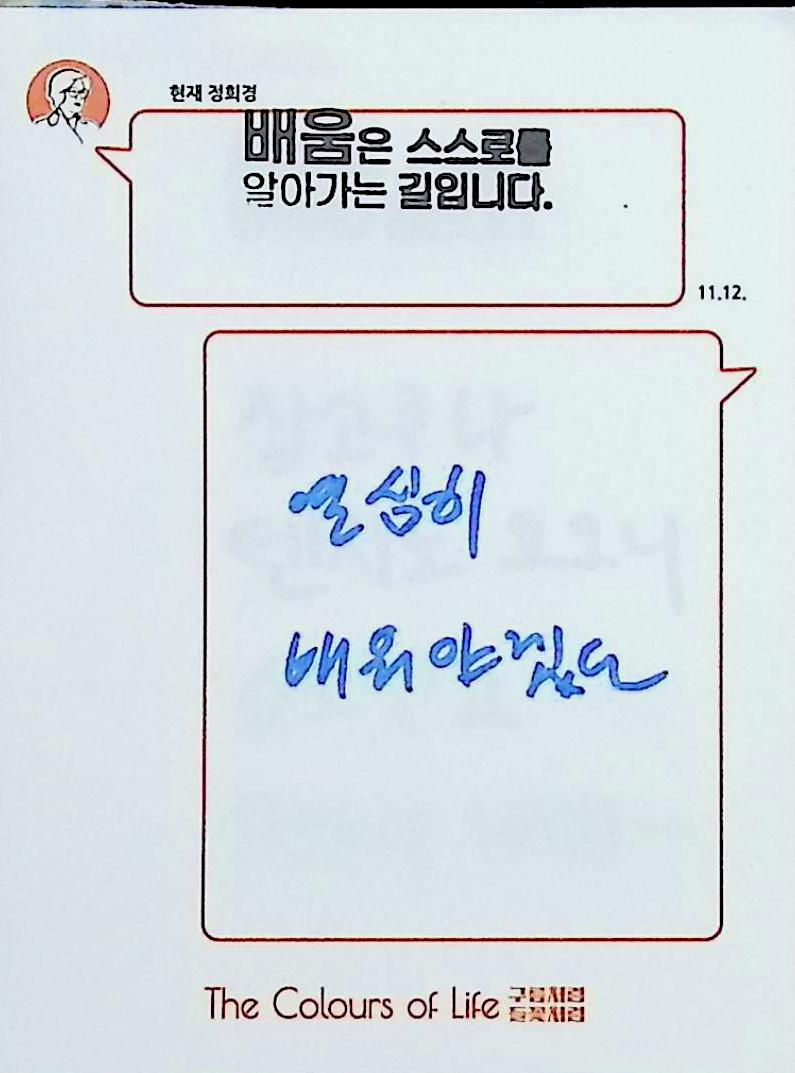 현재 정희경
배움은 스스로를
알아가는 길입니다.
11.12.
열심히
배워야겠다
The Colours of Life 구름처럼
들꽃처럼